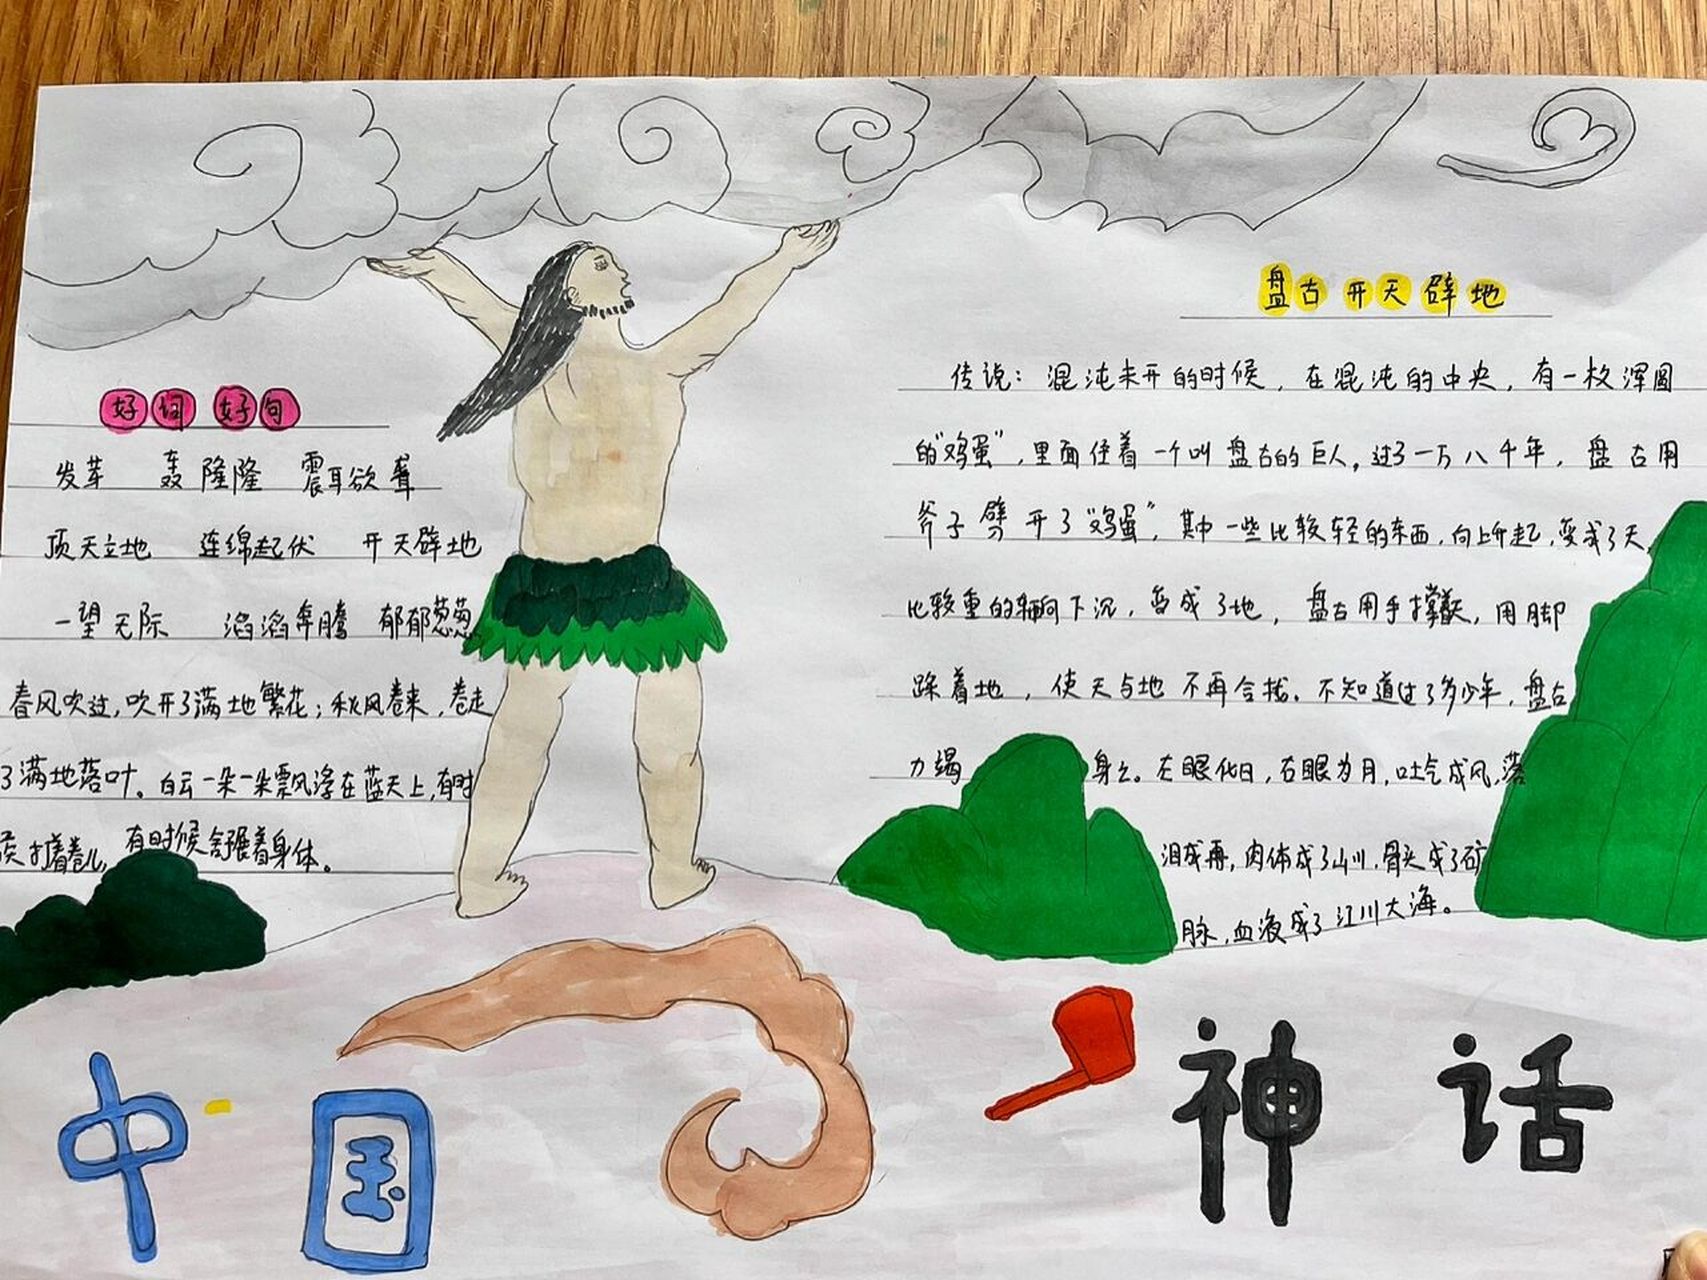 好词好句
发芽 轰隆隆 震耳欲聋
顶天立地 连绵起伏 开天辟地
一望无际 滔滔奔腾 郁郁葱葱
春风吹过，吹开了满地繁花；秋风卷来，卷走
了满地落叶。白云一朵一朵飘浮在蓝天上，有时
候打着卷儿，有时候舒展着身体。
盘古开天辟地
传说：混沌未开的时候，在混沌的中央，有一枚浑圆
的“鸡蛋”，里面住着一个叫盘古的巨人。过了一万八千年，盘古用
斧子劈开了“鸡蛋”，其中一些比较轻的东西，向上升起，变成了天，
比较重的东西向下沉，变成了地，盘古用手撑着天，用脚
踩着地，使天与地不再合拢。不知道过了多少年，盘古
力竭身亡。左眼化日，右眼为月，吐气成风，落
泪成雨，肉体成了山川，骨头成了矿
脉，血液成了江川大海。
中国神话